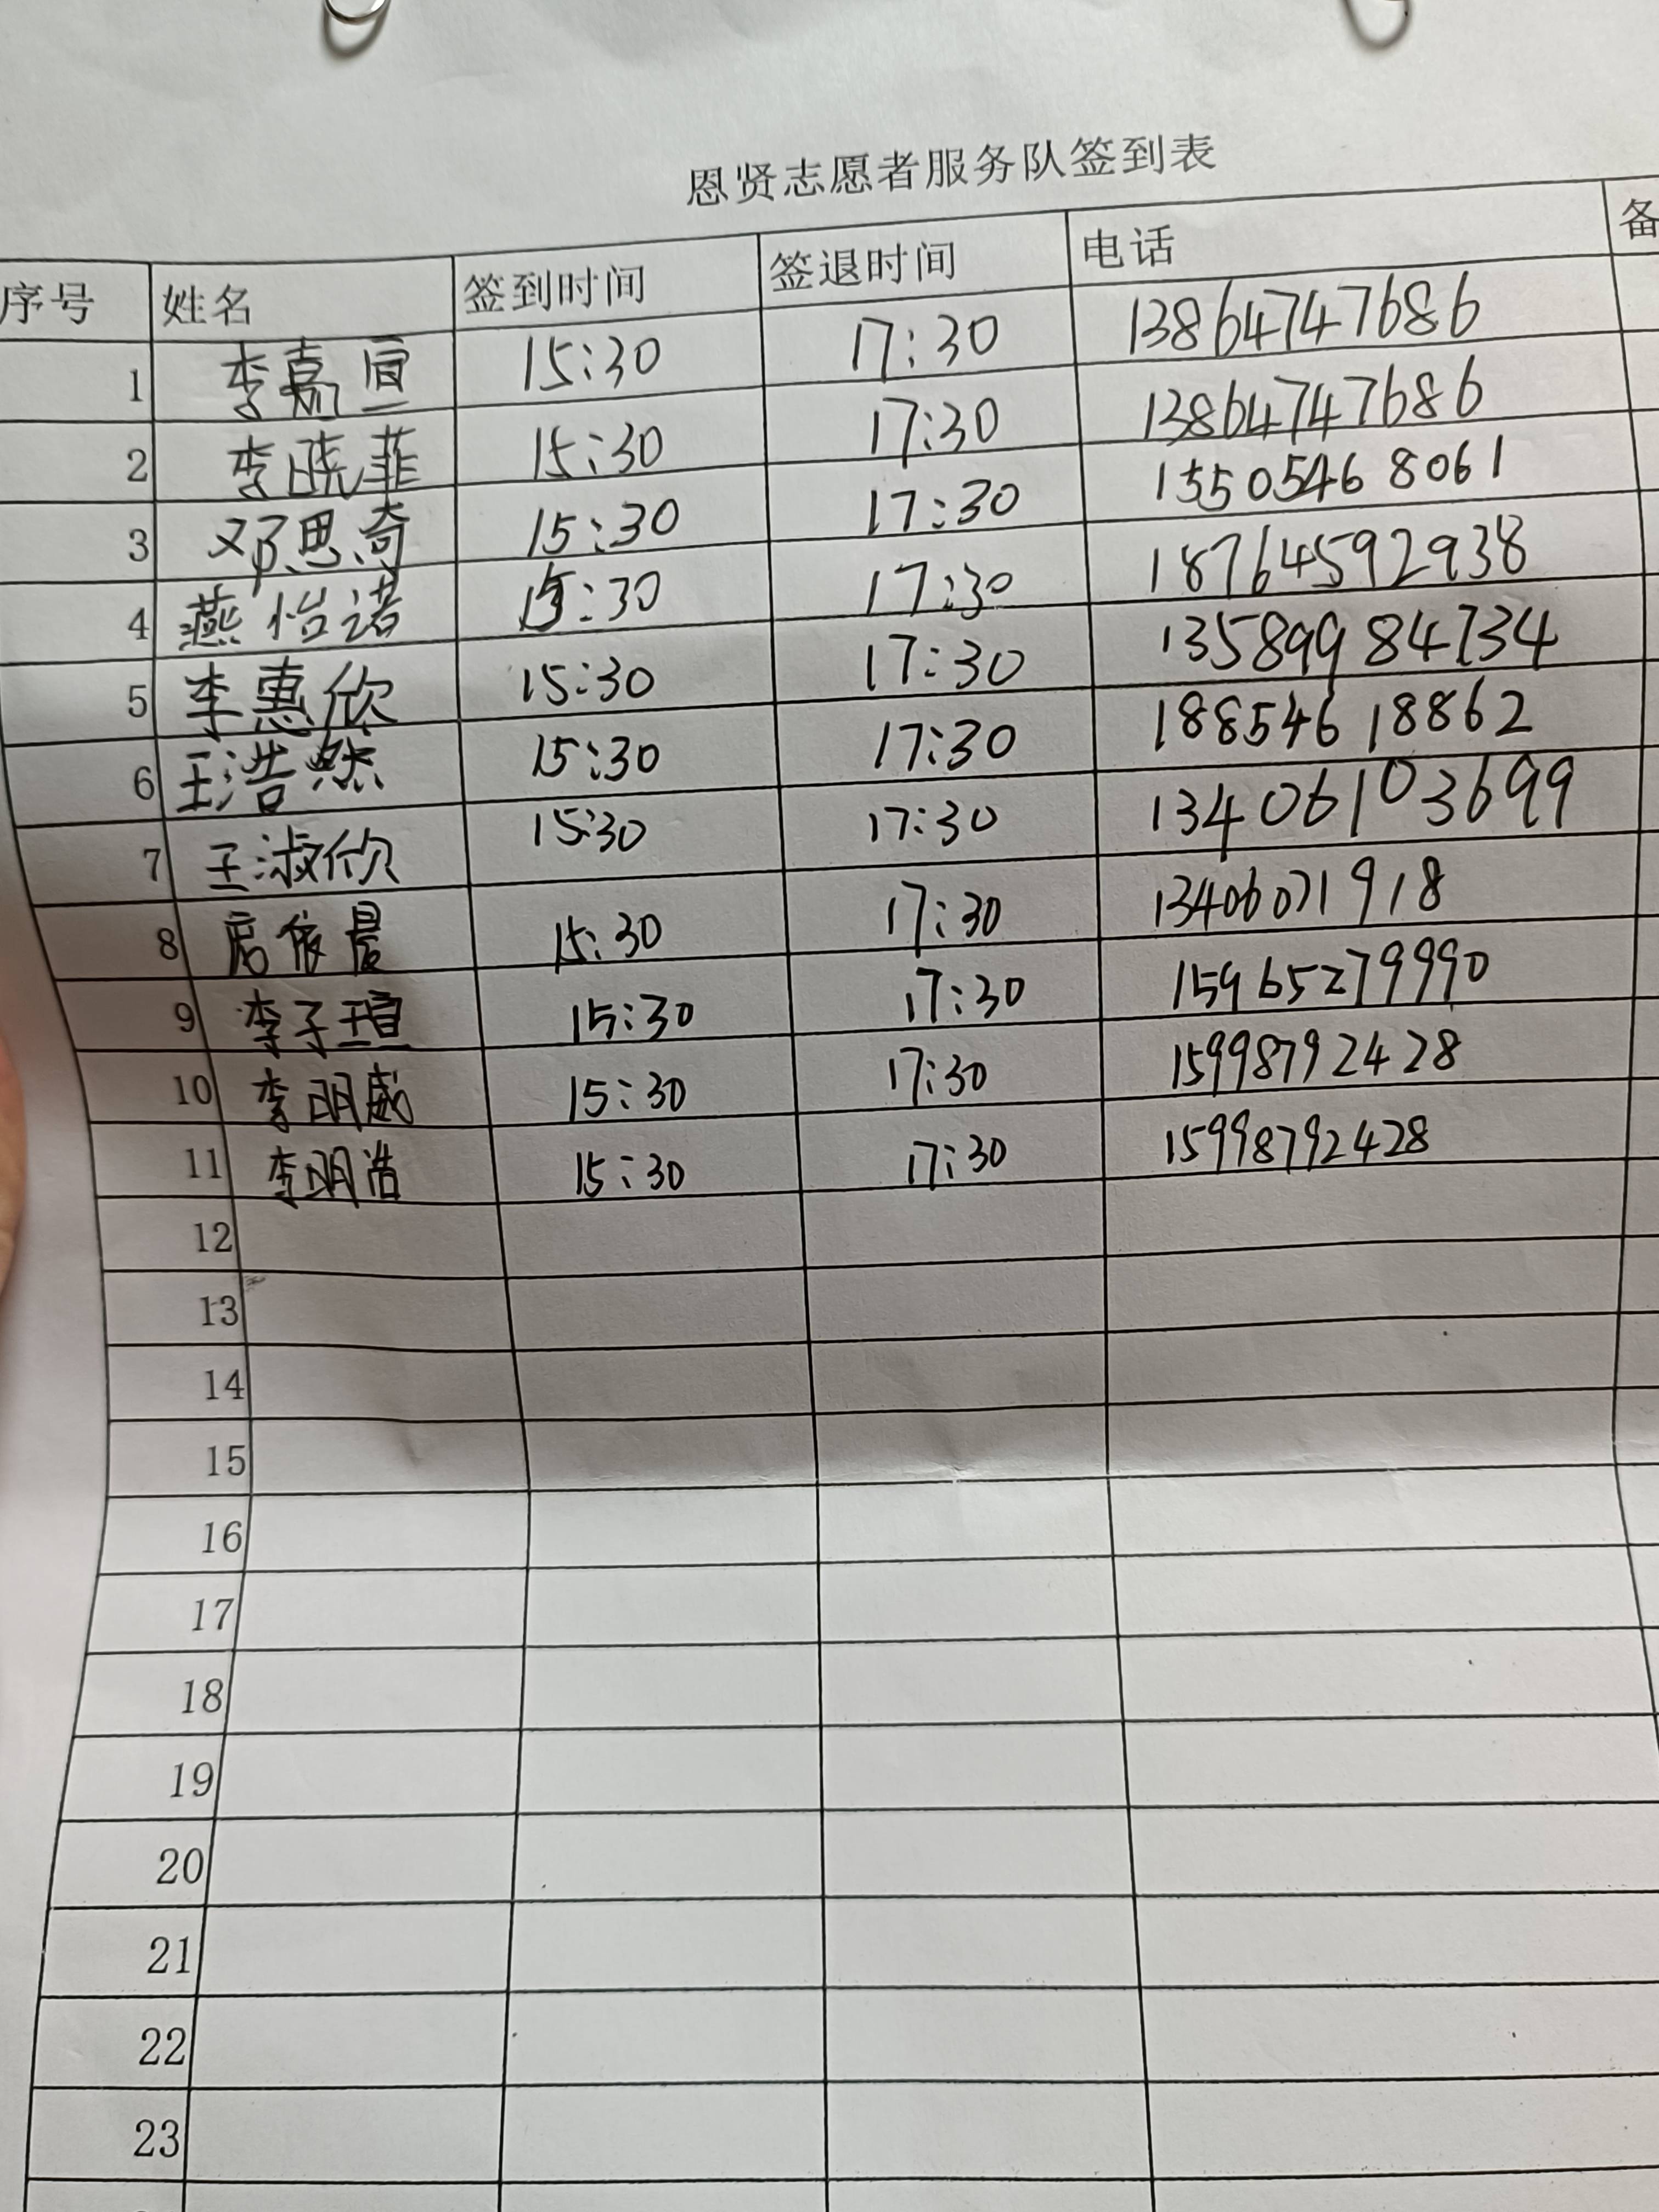 恩贤志愿者服务队签到表
序号 姓名 签到时间 签退时间 电话 备
1 李嘉宣 15:30 17:30 13864747686
2 李晓菲 15:30 17:30 13864747686
3 邓思奇 15:30 17:30 13505468061
4 燕怡诺 15:30 17:30 18764592938
5 李惠欣 15:30 17:30 13589984734
6 王浩然 15:30 17:30 18854618862
7 王淑欣 15:30 17:30 13406103699
8 依晨 15:30 17:30 13406071918
9 李子瑄 15:30 17:30 15965279990
10 李明威 15:30 17:30 15998792428
11 李明浩 15:30 17:30 15998792428
12
13
14
15
16
17
18
19
20
21
22
23